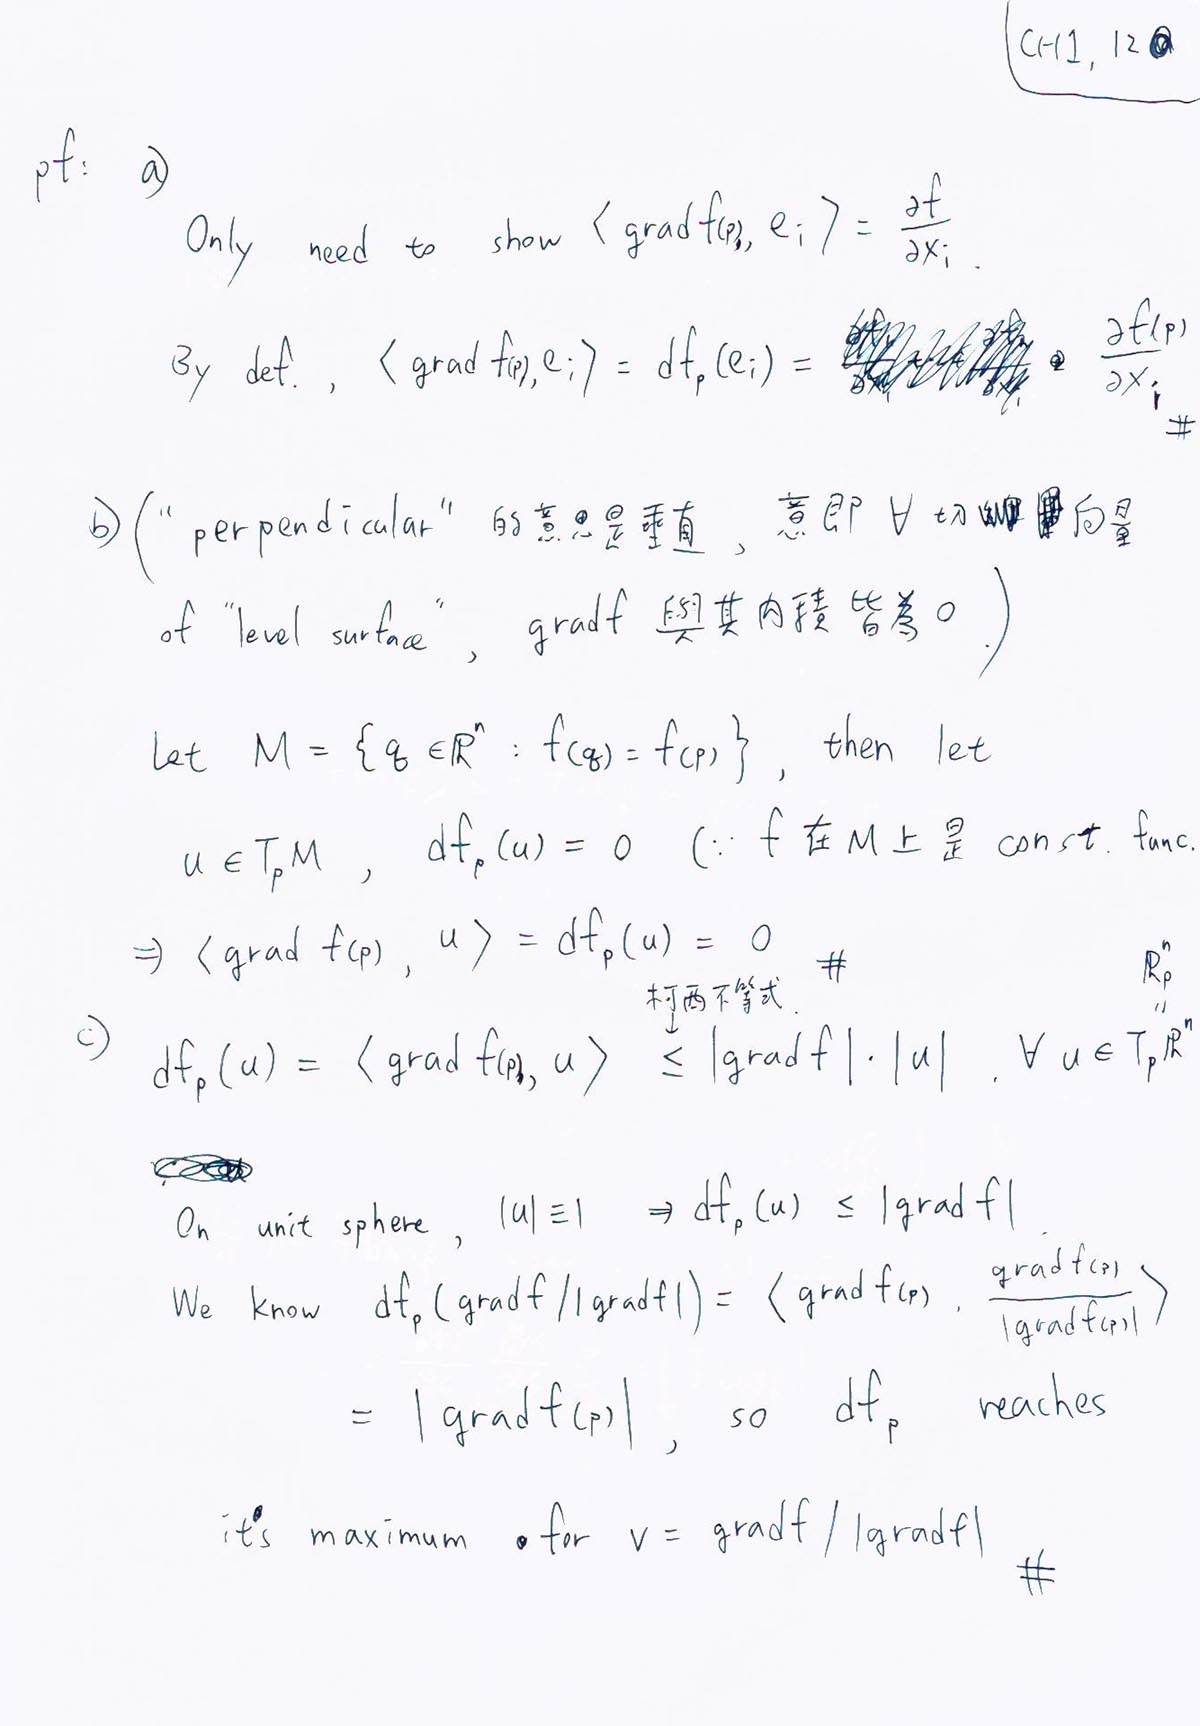 CH1, 12
pf: a)
Only need to show ⟨grad f(p), e_i⟩ = ∂f/∂x_i .
By def. , ⟨grad f(p), e_i⟩ = df_p(e_i) = ∂f(p)/∂x_i #
b) ("perpendicular" 的意思是垂直, 意即 ∀ 切向量
of "level surface", gradf 與其內積皆為0.)
Let M = {q ∈ ℝ^n : f(q) = f(p)}, then let
u ∈ T_pM , df_p(u) = 0 (∵ f 在 M 上是 const. func.
⇒ ⟨grad f(p), u⟩ = df_p(u) = 0 #
柯西不等式
↓
ℝ^n_p
=
c) df_p(u) = ⟨grad f(p), u⟩ ≤ |grad f|·|u| , ∀ u ∈ T_pℝ^n
On unit sphere, |u| ≡ 1 ⇒ df_p(u) ≤ |grad f|
We know df_p(gradf/|gradf|) = ⟨grad f(p), grad f(p)/|grad f(p)|⟩
= |grad f(p)| , so df_p reaches
it's maximum for v = gradf/|gradf| #